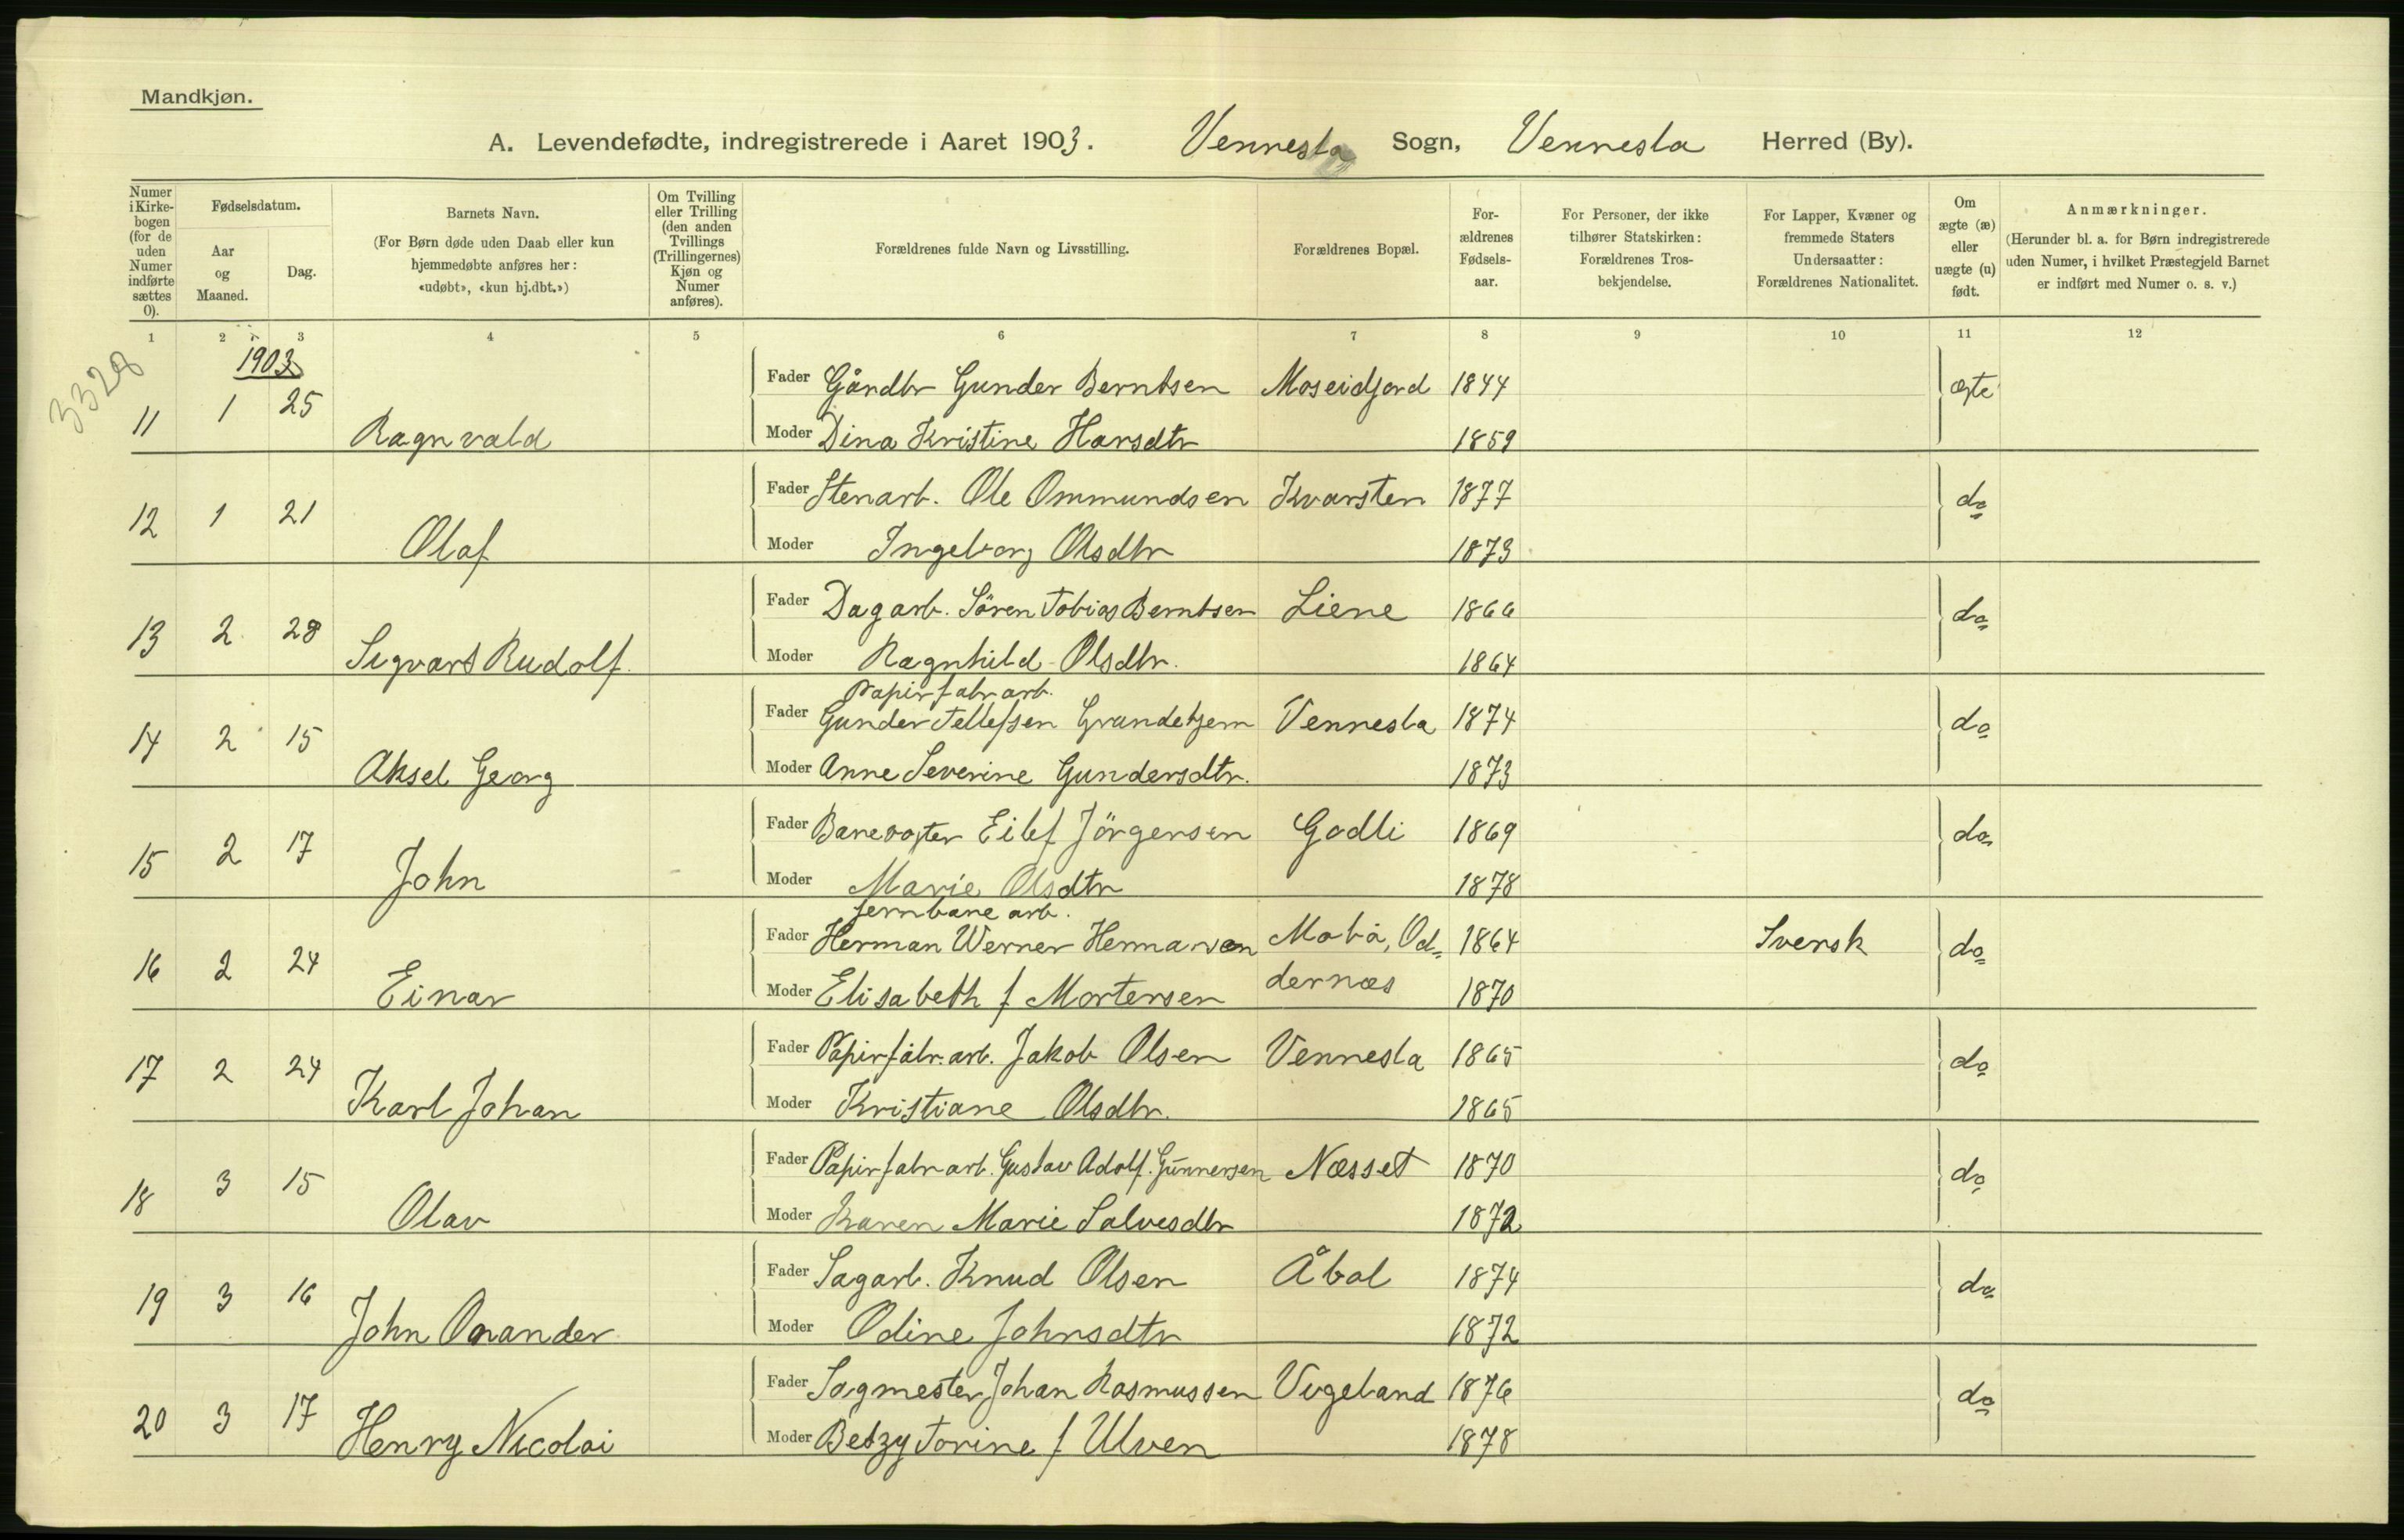 Mandkjøn.
A. Levendefødte, indregistrerede i Aaret 1903. Vennesla Sogn, Vennesla Herred (By).
Numer i Kirkebogen (for de uden Numer indførte sættes 0).
Fødselsdatum.
Aar og Maaned.
Dag.
Barnets Navn.
(For Børn døde uden Daab eller kun hjemmedøbte anføres her: «udøbt», «kun hj.dbt.»)
Om Tvilling eller Trilling (den anden Tvillings (Trillingernes) Kjøn og Numer anføres).
Forældrenes fulde Navn og Livsstilling.
Forældrenes Bopæl.
Forældrenes Fødselsaar.
For Personer, der ikke tilhører Statskirken: Forældrenes Trosbekjendelse.
For Lapper, Kvæner og fremmede Staters Undersaatter: Forældrenes Nationalitet.
Om ægte (æ) eller uægte (u) født.
Anmærkninger.
(Herunder bl. a. for Børn indregistrerede uden Numer, i hvilket Præstegjeld Barnet er indført med Numer o. s. v.)
1 2 3 4 5 6 7 8 9 10 11 12
3328
1903
Fader Gårdbr Gunder Berntsen Moseidjord 1844 ægte
11 1 25 Ragnvald
Moder Dina Kristine Hansdtr 1859
Fader Stenarb. Ole Ommundsen Kvarsten 1877 do
12 1 21 Olaf
Moder Ingeborg Olsdtr 1873
Fader Dagarb. Sören Tobias Berntsen Liene 1866 do
13 2 28 Sigvart Rudolf
Moder Ragnhild Olsdtr. 1864
Papirfabr arb.
Fader Gunder Tellefsen Grundetjern Vennesla 1874 do
14 2 15 Aksel Georg
Moder Anne Severine Gundersdtr. 1873
Fader Banevogter Eilef Jörgensen Godli 1869 do
15 2 17 John
Moder Marie Olsdtr 1878
Jernbane arb.
Fader Herman Werner Hermansen Mobå, Od- 1864 Svensk do
16 2 24 Einar
Moder Elisabeth f Mortensen dernæs 1870
Fader Papirfabr. arb. Jakob Olsen Vennesla 1865 do
17 2 24 Karl Johan
Moder Kristiane Olsdtr. 1865
Fader Papirfabr arb. Gustav Adolf Gunnersen Næsset 1870 do
18 3 15 Olav
Moder Karen Marie Salvesdtr 1872
Fader Sagarb. Knud Olsen Åbol 1874 do
19 3 16 John Onander
Moder Odine Johnsdtr 1872
Fader Sagmester Johan Rasmussen Vigeland 1876 do
20 3 17 Henry Nicolai
Moder Betzy Torine f Ulven 1878